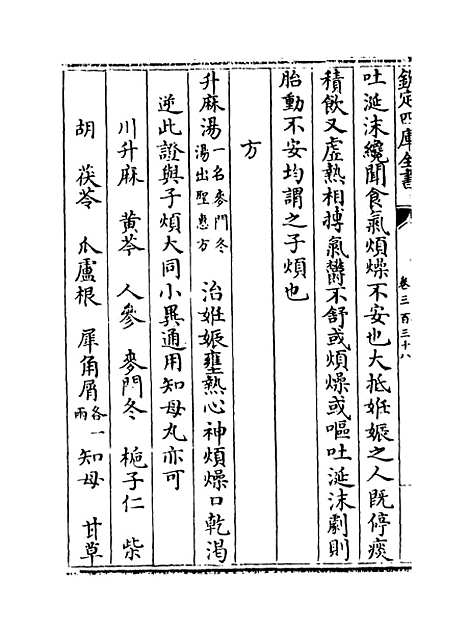 欽定四庫全書
卷三百三十八
吐涎沫纔聞食氣煩燥不安也大抵姙娠之人既停痰
積飲又虛熱相搏氣欝不舒或煩燥或嘔吐涎沫劇則
胎動不安均謂之子煩也
方
升麻湯一名麥門冬湯出聖惠方 治姙娠壅熱心神煩燥口乾渴
逆此證與子煩大同小異通用知母丸亦可
川升麻 黃芩 人參 麥門冬 梔子仁 柴
胡 茯苓 爪蘆根 犀角屑各一兩 知母 甘草